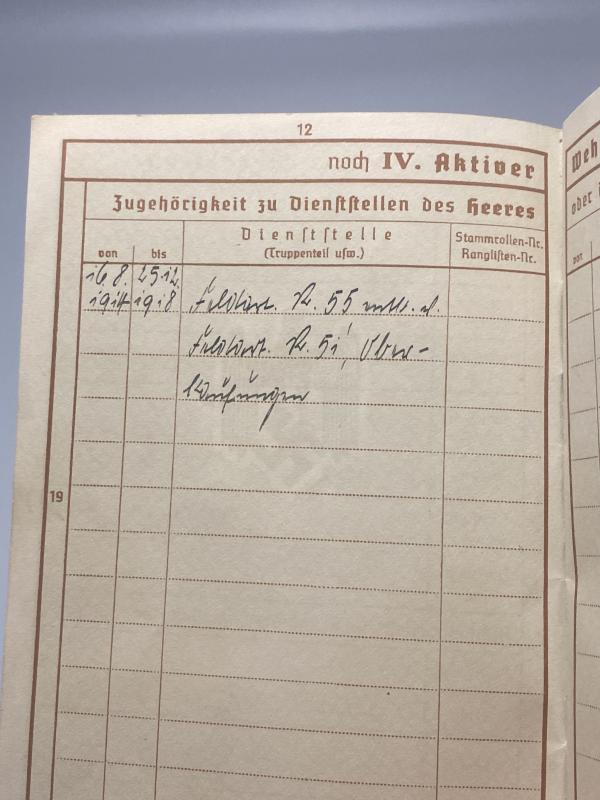 12
noch IV. Aktiver
Zugehörigkeit zu Dienststellen des Heeres
von
bis
Dienststelle
(Truppenteil usw.)
Stammrollen-Nr.
Ranglisten-Nr.
16.8. 25.12.
1914 1918 Feldart. R. 55
Feldart. R. 51, Ober-
19
Weh
oder
von